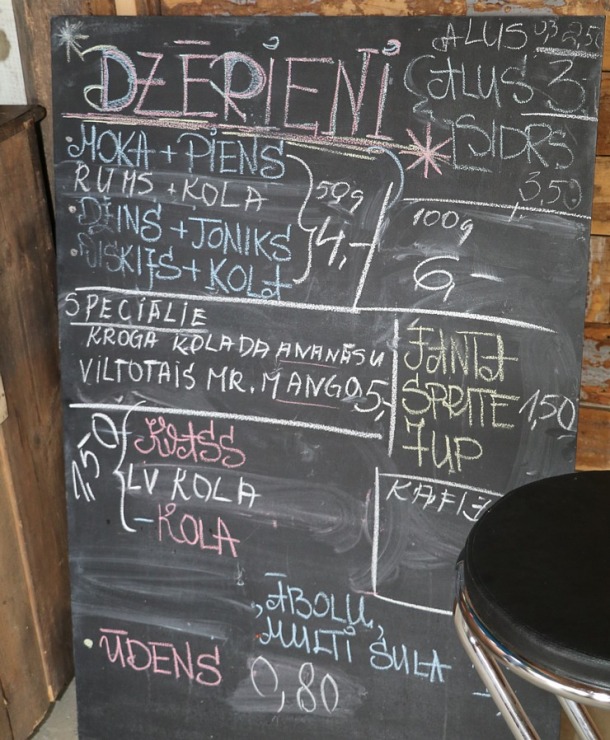 DZĒRIENI
ALUS 0,3 2,50
ALUS 3,-
SIDRS
3,50
MOKA + PIENS
RUMS + KOLA
DŽINS + TONIKS
VISKIJS + KOLA
50g
4,-
100g
6,-
SPECIĀLIE
KROGA KOLADA ANANĀSU
VILTOTAIS MR. MANGO 5,-
FANTA
SPRITE 1,50
7UP
1,50
KVASS
LV KOLA
- KOLA
KAFIJ
ĀBOLU,
MULTI SULA
ŪDENS
0,80